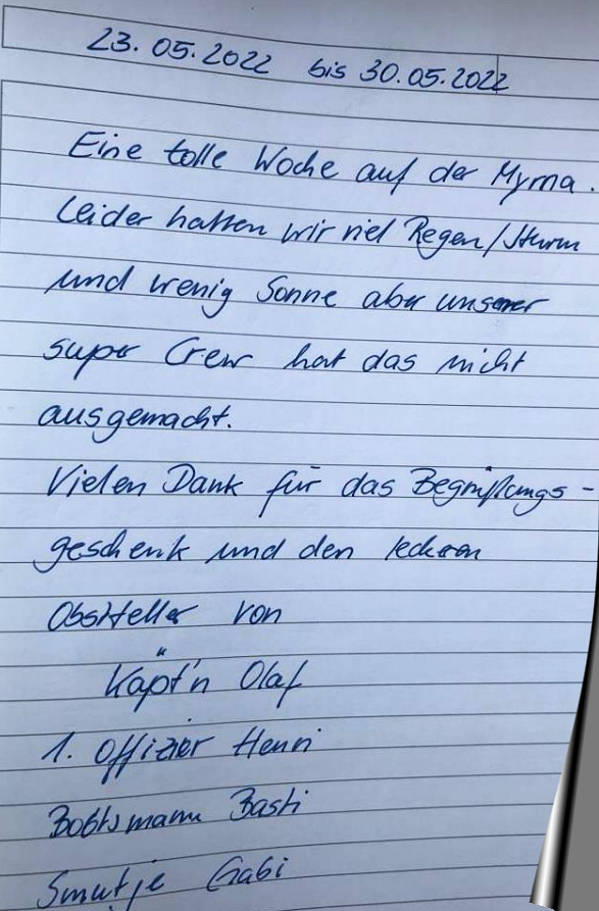 23.05.2022 bis 30.05.2022
Eine tolle Woche auf der Myrna.
Leider hatten wir viel Regen/Sturm
und wenig Sonne aber unserer
super Crew hat das nicht
ausgemacht.
Vielen Dank für das Begrüßungs-
geschenk und den leckeren
Obstteller von
Käpt'n Olaf
1. Offizier Henri
Bootsmann Basti
Smutje Gabi